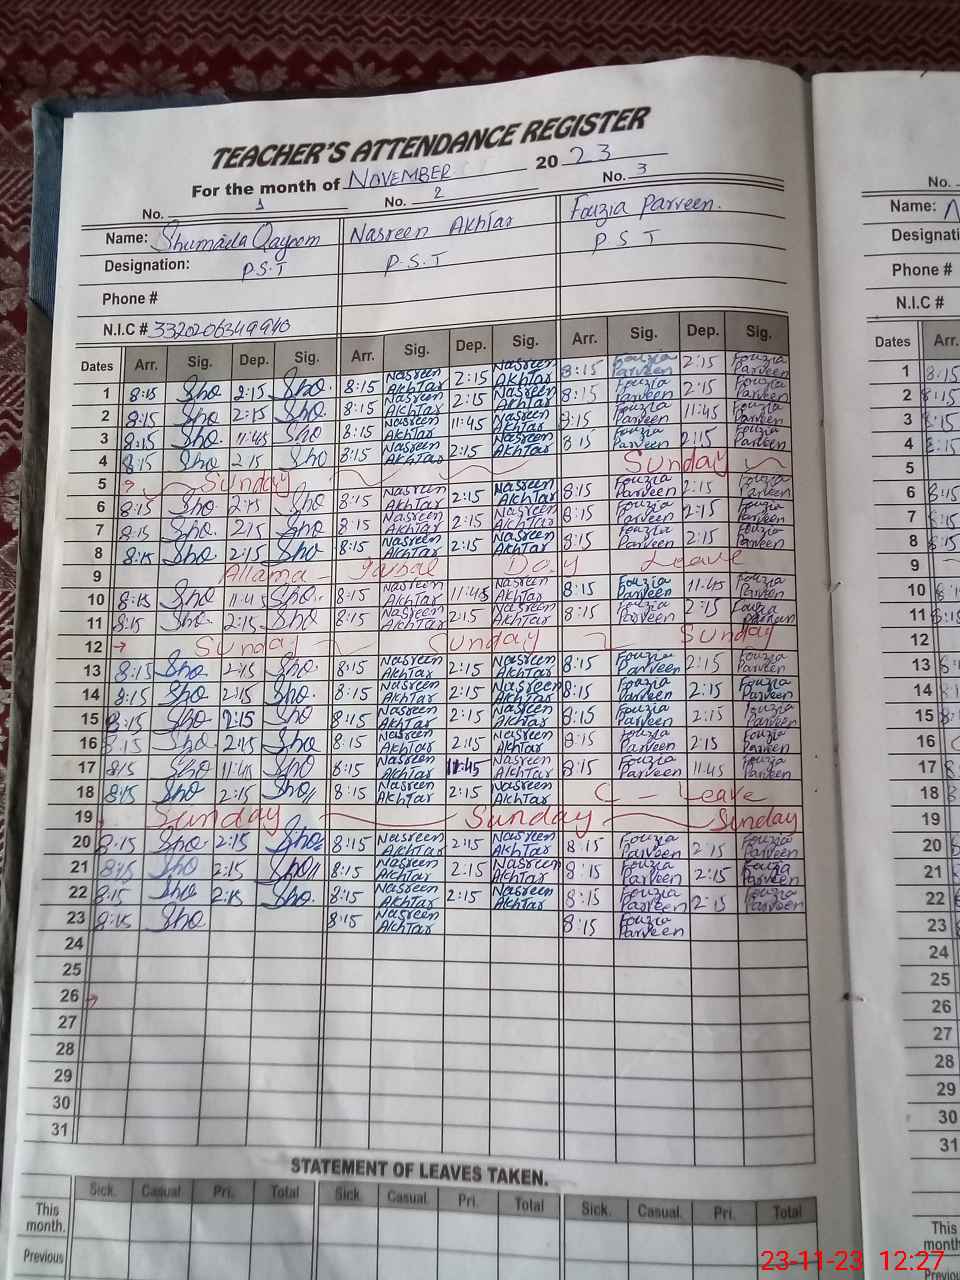 TEACHER'S ATTENDANCE REGISTER
For the month of NOVEMBER 2023
No. 1 No. 2 No. 3
Name: Shumaila Qayoom Nasreen Akhtar Fouzia Parveen.
Designation: P.S.T P.S.T P S T
Phone #
N.I.C #
Dates Arr. Sig. Dep. Sig. Arr. Sig. Dep. Sig. Arr. Sig. Dep. Sig.
1 8:15 Sho 2:15 Sho. 8:15 Nasreen Akhtar 2:15 Nasreen Akhtar 8:15 Fouzia Parveen 2:15 Fouzia Parveen
2 8:15 Sho 2:15 Sho. 8:15 Nasreen Akhtar 2:15 Nasreen Akhtar 8:15 Fouzia Parveen 2:15 Fouzia Parveen
3 8:15 Sho 11:45 Sho 8:15 Nasreen Akhtar 11:45 Nasreen Akhtar 8:15 Fouzia Parveen 11:45 Fouzia Parveen
4 8:15 Sho 2:15 Sho 8:15 Nasreen Akhtar 2:15 Nasreen Akhtar 8:15 Fouzia Parveen 2:15 Fouzia Parveen
5 Sunday Sunday
6 8:15 Sho 2:15 Sho 8:15 Nasreen Akhtar 2:15 Nasreen Akhtar 8:15 Fouzia Parveen 2:15 Fouzia Parveen
7 8:15 Sho. 2:15 Sho 8:15 Nasreen Akhtar 2:15 Nasreen Akhtar 8:15 Fouzia Parveen 2:15 Fouzia Parveen
8 8:15 Sho 2:15 Sho 8:15 Nasreen Akhtar 2:15 Nasreen Akhtar 8:15 Fouzia Parveen 2:15 Fouzia Parveen
9 Allama Iqbal Day Leave
10 8:15 Sho 11:45 Sho. 8:15 Nasreen Akhtar 11:45 Nasreen Akhtar 8:15 Fouzia Parveen 11:45 Fouzia Parveen
11 8:15 Sho 2:15 Sho 8:15 Nasreen Akhtar 2:15 Nasreen Akhtar 8:15 Fouzia Parveen 2:15 Fouzia Parveen
12 Sunday Sunday Sunday
13 8:15 Sho 2:15 Sho. 8:15 Nasreen Akhtar 2:15 Nasreen Akhtar 8:15 Fouzia Parveen 2:15 Fouzia Parveen
14 8:15 Sho 2:15 Sho. 8:15 Nasreen Akhtar 2:15 Nasreen Akhtar 8:15 Fouzia Parveen 2:15 Fouzia Parveen
15 8:15 Sho 2:15 Sho 8:15 Nasreen Akhtar 2:15 Nasreen Akhtar 8:15 Fouzia Parveen 2:15 Fouzia Parveen
16 8:15 Sho. 2:15 Sho 8:15 Nasreen Akhtar 2:15 Nasreen Akhtar 8:15 Fouzia Parveen 2:15 Fouzia Parveen
17 8:15 Sho 11:45 Sho 8:15 Nasreen Akhtar 11:45 Nasreen Akhtar 8:15 Fouzia Parveen 11:45 Fouzia Parveen
18 8:15 Sho 2:15 Sho 8:15 Nasreen Akhtar 2:15 Nasreen Akhtar C - Leave
19 Sunday Sunday Sunday
20 8:15 Sho 2:15 Sho 8:15 Nasreen Akhtar 2:15 Nasreen Akhtar 8:15 Fouzia Parveen 2:15 Fouzia Parveen
21 8:15 Sho 2:15 Sho 8:15 Nasreen Akhtar 2:15 Nasreen Akhtar 8:15 Fouzia Parveen 2:15 Fouzia Parveen
22 8:15 Sho 2:15 Sho. 8:15 Nasreen Akhtar 2:15 Nasreen Akhtar 8:15 Fouzia Parveen 2:15 Fouzia Parveen
23 8:15 Sho 8:15 Nasreen Akhtar 8:15 Fouzia Parveen
24
25
26
27
28
29
30
31
STATEMENT OF LEAVES TAKEN.
Sick. Casual Pri. Total Sick. Casual. Pri. Total Sick. Casual. Pri. Total
This month.
Previous
No.
Name:
Designati
Phone #
N.I.C #
Dates Arr.
1 8:15
2 8:15
3 8:15
4 8:15
5
6 8:15
7 8:15
8 8:15
9
10 8:15
11 8:15
12
13 8:15
14 8:15
15 8:15
16
17
18
19
20
21
22
23
24
25
26
27
28
29
30
31
This month
Previou
23-11-23 12:27